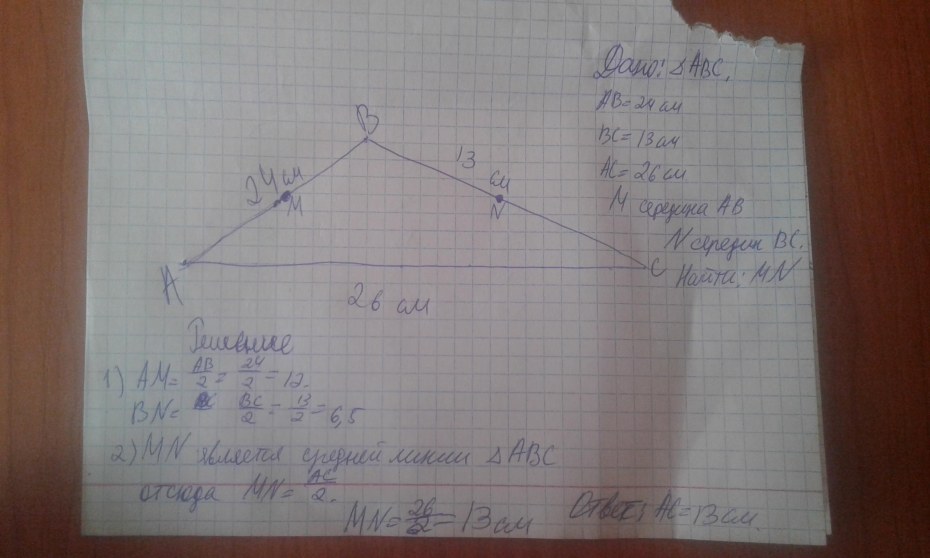 Дано: △ABC,
AB=24 см
BC=13 см
AC=26 см
M середина AB
N середин BC.
Найти: MN
B
24 см
M
13 см
N
A
C
26 см
Решение
1) AM= AB/2 = 24/2 = 12.
BN= BC/2 = 13/2 = 6,5
2) MN является средней линии △ABC
отсюда MN= AC/2.
MN= 26/2 = 13 см
Ответ: AC=13 см.